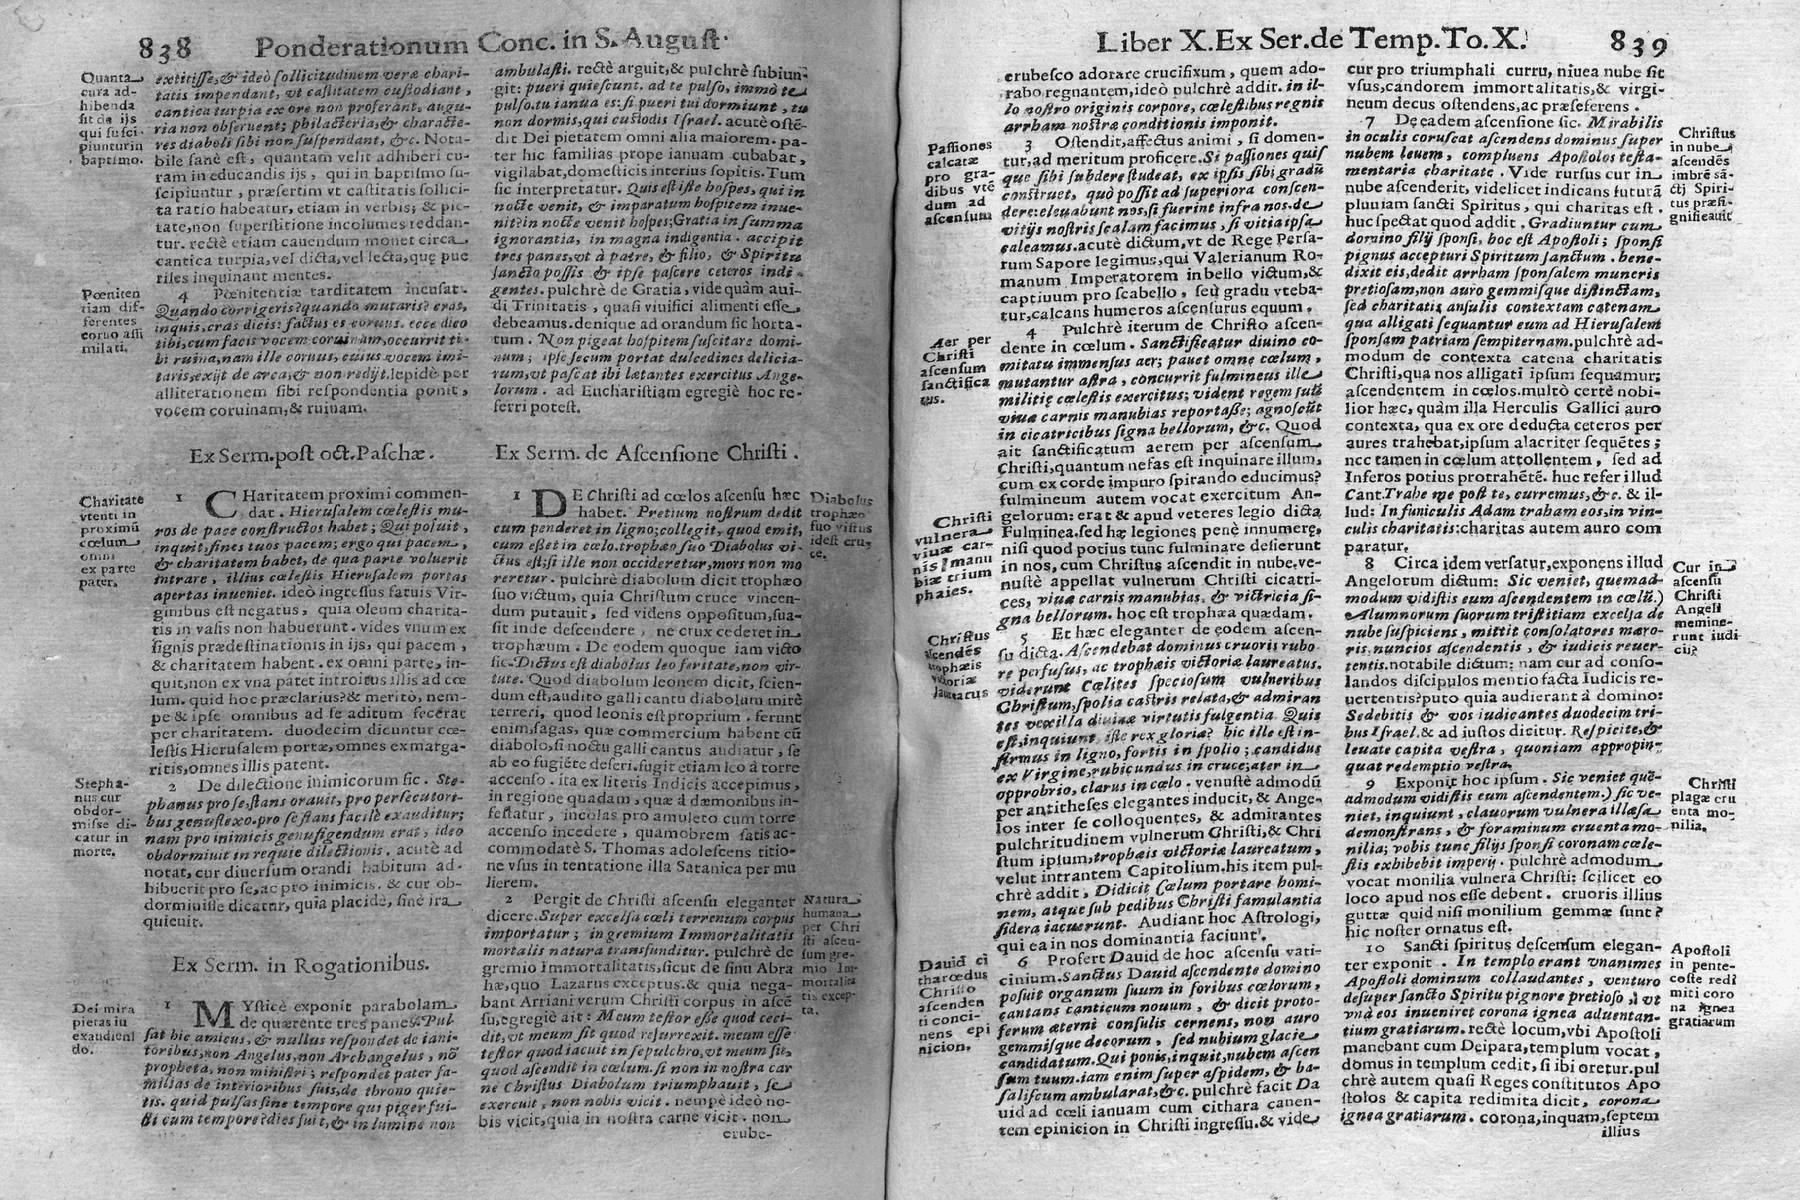 838 Ponderationum Conc. in S. August.
Quanta
cura ad-
hibenda
sit de ijs
qui susci-
piunturin
baptismo.
extitisse, & ideò sollicitudinem veræ chari-
tatis impendant, vt castitatem custodiant,
cantica turpia ex ore non proferant, augu-
ria non obseruent; philacteria, & characte-
res diaboli sibi non suspendant, &c. Nota-
bile sanè est, quantam velit adhiberi cu-
ram in educandis ijs, qui in baptismo su-
scipiuntur, præsertim vt castitatis sollici-
ta ratio habeatur, etiam in verbis; & pie-
tate, non superstitione incolumes reddan-
tur. rectè etiam cauendum monet circa
cantica turpia, vel dicta, vel lecta, quę pue
riles inquinant mentes.
Pœniten
tiam dif-
ferentes
coruo assi
milati.
4 Pœnitentiæ tarditatem incusat.
Quando corrigeris? quando mutaris? eras,
inquis, cras dicis: factus es coruus. ecce dico
tibi, cum facis vocem coruinam, occurrit ti-
bi ruina, nam ille coruus, cuius vocem imi-
taris, exijt de arca, & non redijt. lepidè per
alliterationem sibi respondentia ponit,
vocem coruinam, & ruinam.
Ex Serm. post oct. Paschæ.
Charitate
vtenti in
proximũ
cœlum
omni
ex parte
patet.
1 CHaritatem proximi commen-
dat. Hierusalem cœlestis mu-
ros de pace constructos habet; Qui posuit,
inquit, fines tuos pacem; ergo qui pacem,
& charitatem habet, de qua parte voluerit
intrare, illius cœlestis Hierusalem portas
apertas inueniet. ideò ingressus fatuis Vir-
ginibus est negatus, quia oleum charita-
tis in vasis non habuerunt. vides vnum ex
signis prædestinationis in ijs, qui pacem,
& charitatem habent. ex omni parte, in-
quit, non ex vna patet introitus illis ad cœ
lum. quid hoc præclarius? & meritò, nem-
pe & ipse omnibus ad se aditum fecerat
per charitatem. duodecim dicuntur cœ-
lestis Hierusalem portæ, omnes ex marga-
ritis, omnes illis patent.
Stepha-
nus cur
obdor-
misse di-
catur in
morte.
2 De dilectione inimicorum sic. Ste-
phanus pro se, stans orauit, pro persecutori-
bus genuflexo. pro se stans facilè exauditur;
nam pro inimicis genufigendum erat, ideo
obdormiuit in requie dilectionis. acutè ad
notat, cur diuersum orandi habitum ad-
hibuerit pro se, ac pro inimicis. & cur ob-
dormiuisse dicatur, quia placidè, sine ira
quieuit.
Ex Serm. in Rogationibus.
Dei mira
pietas iu
exaudien
do.
1 MYsticè exponit parabolam
de quærente tres panes. Pul
sat hic amicus, & nullus respondet de iani-
toribus, non Angelus, non Archangelus, nõ
propheta, non ministri; respondet pater fa-
milias de interioribus suis, de throno quie-
tis. quid pulsas sine tempore qui piger fui-
sti cum tempore? dies fuit, & in lumine non
ambulasti. rectè arguit, & pulchrè subiun-
git: pueri quiescunt. ad te pulso, immò te
pulso. tu ianua es: si pueri tui dormiunt, tu
non dormis, qui custodis Israel. acutè ostẽ-
dit Dei pietatem omni alia maiorem. pa-
ter hic familias prope ianuam cubabat,
vigilabat, domesticis interius sopitis. Tum
sic interpretatur. Quis est iste hospes, qui in
nocte venit, & imparatum hospitem inue-
nit? in nocte venit hospes; Gratia in summa
ignorantia, in magna indigentia. accipit
tres panes, vt à patre, & filio, & Spiritu
sancto possis & ipse pascere ceteros indi-
gentes. pulchrè de Gratia, vide quàm aui-
di Trinitatis, quasi viuifici alimenti esse
debeamus. denique ad orandum sic horta-
tum. Non pigeat hospitem suscitare domi-
num; ipse secum portat dulcedines delicia-
rum, vt pascat ibi lætantes exercitus Ange-
lorum. ad Eucharistiam egregiè hoc re-
ferri potest.
Ex Serm. de Ascensione Christi.
1 DE Christi ad cœlos ascensu hæc
habet. Pretium nostrum dedit
cum penderet in ligno; collegit, quod emit,
cum esset in cœlo. trophæo suo Diabolus vi-
ctus est; si ille non occideretur, mors non mo
reretur. pulchrè diabolum dicit trophæo
suo victum, quia Christum cruce vincen-
dum putauit, sed videns oppositum, sua-
sit inde descendere, ne crux cederet in
trophæum. De eodem quoque iam victo
sic. Dictus est diabolus leo feritate, non vir-
tute. Quod diabolum leonem dicit, scien-
dum est, audito galli cantu diabolum mirè
terreri, quod leonis est proprium. ferunt
enim, sagas, quæ commercium habent cũ
diabolo, si noctu galli cantus audiatur, se
ab eo fugiẽte deseri. fugit etiam leo à torre
accenso. ita ex literis Indicis accepimus,
in regione quadam, quæ à dæmonibus in-
festatur, incolas pro amuleto cum torre
accenso incedere, quamobrem satis ac-
commodatè S. Thomas adolescens titio-
ne vsus in tentatione illa Satanica per mu
lierem.
Diabolus
trophæo
suo victus
idest cru-
ce.
2 Pergit de Christi ascensu eleganter
dicere. Super excelsa cœli terrenum corpus
importatur; in gremium Immortalitatis
mortalis natura transfunditur. pulchrè de
gremio Immortalitatis, sicut de sinu Abra
hæ, quo Lazarus exceptus. & quia nega-
bant Arriani verum Christi corpus in ascẽ
su, egregiè ait: Meum testor esse quod ceci-
dit, vt meum sit quod resurrexit. meum esse
testor quod iacuit in sepulchro, vt meum sit,
quod ascendit in cœlum. si non in nostra car
ne Christus Diabolum triumphauit, se
exercuit, non nobis vicit. nempè ideò no-
bis vicit, quia in nostra carne vicit. non
erube-
Natura
humana
per Chri
sti ascen-
sum gre-
mio Im-
mortalita
tis excep-
ta.
Liber X. Ex Ser. de Temp. To. X. 839
erubesco adorare crucifixum, quem ado-
rabo regnantem, ideò pulchrè addit. in il-
lo nostro originis corpore, cœlestibus regnis
arrham nostræ conditionis imponit.
Passiones
calcatæ
pro gra-
dibus vtẽ
dum ad
ascensum
3 Ostendit, affectus animi, si domen-
tur, ad meritum proficere. Si passiones quis
que sibi subdere studeat, ex ipsis sibi gradũ
construet, quò possit ad superiora conscen-
dere: eleuabunt nos, si fuerint infra nos. de
vitijs nostris scalam facimus, si vitia ipsa
calcamus. acutè dictum, vt de Rege Persa-
rum Sapore legimus, qui Valerianum Ro-
manum Imperatorem in bello victum, &
captiuum pro scabello, seù gradu vteba-
tur, calcans humeros ascensurus equum.
Aer per
Christi
ascensum
sanctifica
tus.
4 Pulchrè iterum de Christo ascen-
dente in cœlum. Sanctificatur diuino co-
mitatu immensus aer; pauet omne cœlum,
mutantur astra, concurrit fulmineus ille
militię cœlestis exercitus; vident regem suũ
viuæ carnis manubias reportasse; agnoscũt
in cicatricibus signa bellorum, &c. Quod
ait sanctificatum aerem per ascensum
Christi, quantum nefas est inquinare illum,
cum ex corde impuro spirando educimus?
fulmineum autem vocat exercitum An-
gelorum: erat & apud veteres legio dicta
Fulminea. sed hę legiones penè innumerę,
nisi quod potius tunc fulminare desierunt
in nos, cum Christus ascendit in nube. ve-
nustè appellat vulnerum Christi cicatri-
ces, viuæ carnis manubias. & victricia si-
gna bellorum. hoc est trophæa quædam.
Christi
vulnera
viuæ car-
nis manu
biæ trium
phales.
Christus
ascendẽs
trophæis
victoriæ
laureatus
5 Et hæc eleganter de eodem ascen-
su dicta. Ascendebat dominus cruoris rubo
re perfusus, ac trophæis victoriæ laureatus.
viderunt Cœlites speciosum vulneribus
Christum, spolia castris relata, & admiran
tes vexilla diuinæ virtutis fulgentia. Quis
est, inquiunt, iste rex gloriæ? hic ille est in-
firmus in ligno, fortis in spolio; candidus
ex Virgine, rubicundus in cruce; ater in
opprobrio, clarus in cœlo. venustè admodũ
per antitheses elegantes inducit, & Ange-
los inter se colloquentes, & admirantes
pulchritudinem vulnerum Christi, & Chri
stum ipsum, trophæis victoriæ laureatum,
velut intrantem Capitolium. his item pul-
chrè addit, Didicit Cœlum portare homi-
nem, atque sub pedibus Christi famulantia
sidera iacuerunt. Audiant hoc Astrologi,
qui ea in nos dominantia faciunt.
Dauid ci
tharœdus
Christo
ascenden
ti conci-
nens epi
nicion.
6 Profert Dauid de hoc ascensu vati-
cinium. Sanctus Dauid ascendente domino
posuit organum suum in foribus cœlorum,
cantans canticum nouum, & dicit proto-
ferum æterni consulis cernens, non auro
gemmisque decorum, sed nubium glacie
candidatum. Qui ponis, inquit, nubem ascen
sum tuum. iam enim super aspidem, & ba-
saliscum ambularat, &c. pulchrè facit Da
uid ad cœli ianuam cum cithara canen-
tem epinicion in Christi ingressu. & vide
cur pro triumphali curru, niuea nube sit
vsus, candorem immortalitatis, & virgi-
neum decus ostendens, ac præseferens.
7 De eadem ascensione sic. Mirabilis
in oculis coruscat ascendens dominus super
nubem leuem, compluens Apostolos testa-
mentaria charitate. Vide rursus cur in
nube ascenderit, videlicet indicans futurã
pluuiam sancti Spiritus, qui charitas est.
huc spectat quod addit. Gradiuntur cum
domino filij sponsi, hoc est Apostoli; sponsi
pignus accepturi Spiritum sanctum. bene-
dixit eis, dedit arrham sponsalem muneris
pretiosam, non auro gemmisque distinctam,
sed charitatis ansulis contextam catenam,
qua alligati sequantur eum ad Hierusalem
sponsam patriam sempiternam. pulchrè ad-
modum de contexta catena charitatis
Christi, qua nos alligati ipsum sequamur;
ascendentem in cœlos. multò certè nobi-
lior hæc, quàm illa Herculis Gallici auro
contexta, qua ex ore deducta ceteros per
aures trahebat, ipsum alacriter sequẽtes;
nec tamen in cœlum attollentem, sed ad
Inferos potius protrahẽtẽ. huc refer illud
Cant. Trahe me post te, curremus, &c. & il-
lud: In funiculis Adam traham eos, in vin-
culis charitatis: charitas autem auro com
paratur.
Christus
in nube
ascendẽs
imbrẽ sã-
cti Spiri-
tus præsi-
gnificauit
8 Circa idem versatur, exponens illud
Angelorum dictum: Sic veniet, quemad-
modum vidistis eum ascendentem in cœlũ.)
Alumnorum suorum tristitiam excelsa de
nube suspiciens, mittit consolatores mæro-
ris, nuncios ascendentis, & iudicis reuer-
tentis. notabile dictum: nam cur ad conso-
landos discipulos mentio facta Iudicis re-
uertentis? puto quia audierant à domino:
Sedebitis & vos iudicantes duodecim tri-
bus Israel. & ad iustos dicitur. Respicite, &
leuate capita vestra, quoniam appropin-
quat redemptio vestra.
Cur in
ascensu
Christi
Angeli
memine-
runt iudi
cij?
9 Exponit hoc ipsum. Sic veniet quẽ-
admodum vidistis eum ascendentem.) Sic ve-
niet, inquiunt, clauorum vulnera illæsa
demonstrans, & foraminum cruenta mo-
nilia; vobis tunc filijs sponsi coronam cœle-
stis exhibebit imperij. pulchrè admodum
vocat monilia vulnera Christi: scilicet eo
loco apud nos esse debent. cruoris illius
guttæ quid nisi monilium gemmæ sunt?
hic noster ornatus est.
Christi
plagæ cru
enta mo-
nilia.
10 Sancti spiritus descensum elegan-
ter exponit. In templo erant vnanimes
Apostoli dominum collaudantes, venturo
desuper sancto Spiritu pignore pretioso, vt
vna eos inueniret corona ignea aduentan-
tium gratiarum. rectè locum, vbi Apostoli
manebant cum Deipara, templum vocat,
domus in templum cedit, si ibi oretur. pul
chrè autem quasi Reges constitutos Apo
stolos & capita redimita dicit, corona
ignea gratiarum. corona, inquam, septem
illius
Apostoli
in pente-
coste redi
miti coro
na ignea
gratiarum